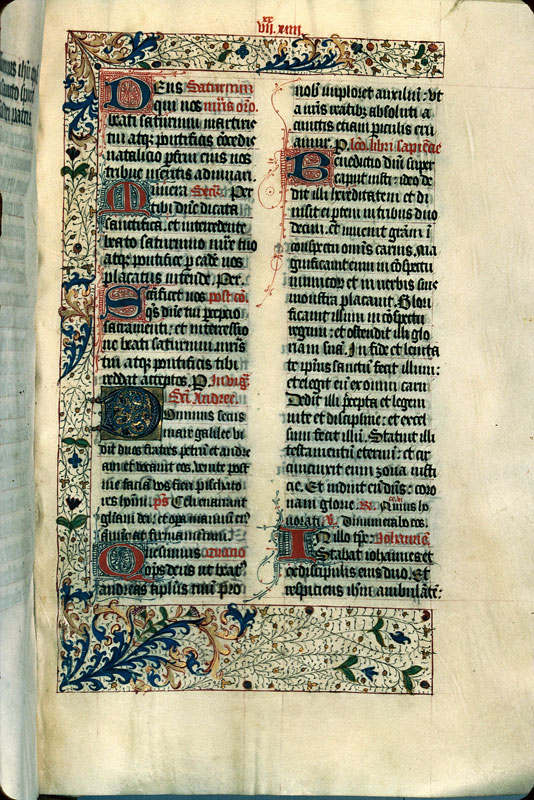 xx
vij. xiiij
DEus Saturnini
qui nos mris oro.
beati saturnini martiris
tui atq; pontificis cōcedis
natalicio pfrui eius nos
tribue meritis adiuuari.
Munera Secr. Per
tibi dn̄e dicata
sanctifica. et intercedente
beato saturnino mr̄e tuo
atq; pontifice p eadē nos
placatus intende. Per.
Sāctificet nos post cō.
qs dn̄e tui pceptio
sacramenti: et intercessio
ne beati saturnini mris
tui atq; pontificis tibi
reddat acceptos. P. In uigł.
Sci Andree.
Dominus secus
mare galilee vi
dit duos fratres petrū et andre
am et vocauit eos. venite post
me faciā vos fieri piscato
res hoīm. ps Celi enarrant
gliam dei: et opa manuū eiꝰ
annunciat firmamentum.
Quesumus oracio
omps deus ut beatꝰ
andreas aplus tuus pro
nobis imploret auxiliū: ut
a nris reatibꝫ absoluti a
cunctis etiam piculis eru
amur. P. lco. libri sapiencie
Benedictio dn̄i super
caput iusti: ideo de
dit illi hereditatem et di
uisit ei ptem in tribus duo
decim. et inuenit grām ī
conspectu omīs carnis. Ma
gnificauit eum in cōspectu
inimicoꝝ et in verbis suis
monstra placauit. Glori
ficauit illum in cōspectu
regum: et ostendit illi glo
riam suā. In fide et lenita
te ipsius sanctū fecit illum:
et elegit eū ex omni carne
Dedit illi pcepta et legem
vite et discipline: et excel
sum fecit illū. Statuit illi
testamentū eternū: et cir
cumcinxit eum zona iusti
cie. Et induit eū dn̄s: coro
nam glorie. R. Nimis ho
norati V. Dinumerabo eos.
IN illo tp̄r. Johannē.
Stabat iohannes et
ex discipulis eius duo. Et
respiciens ihm ambulātē: